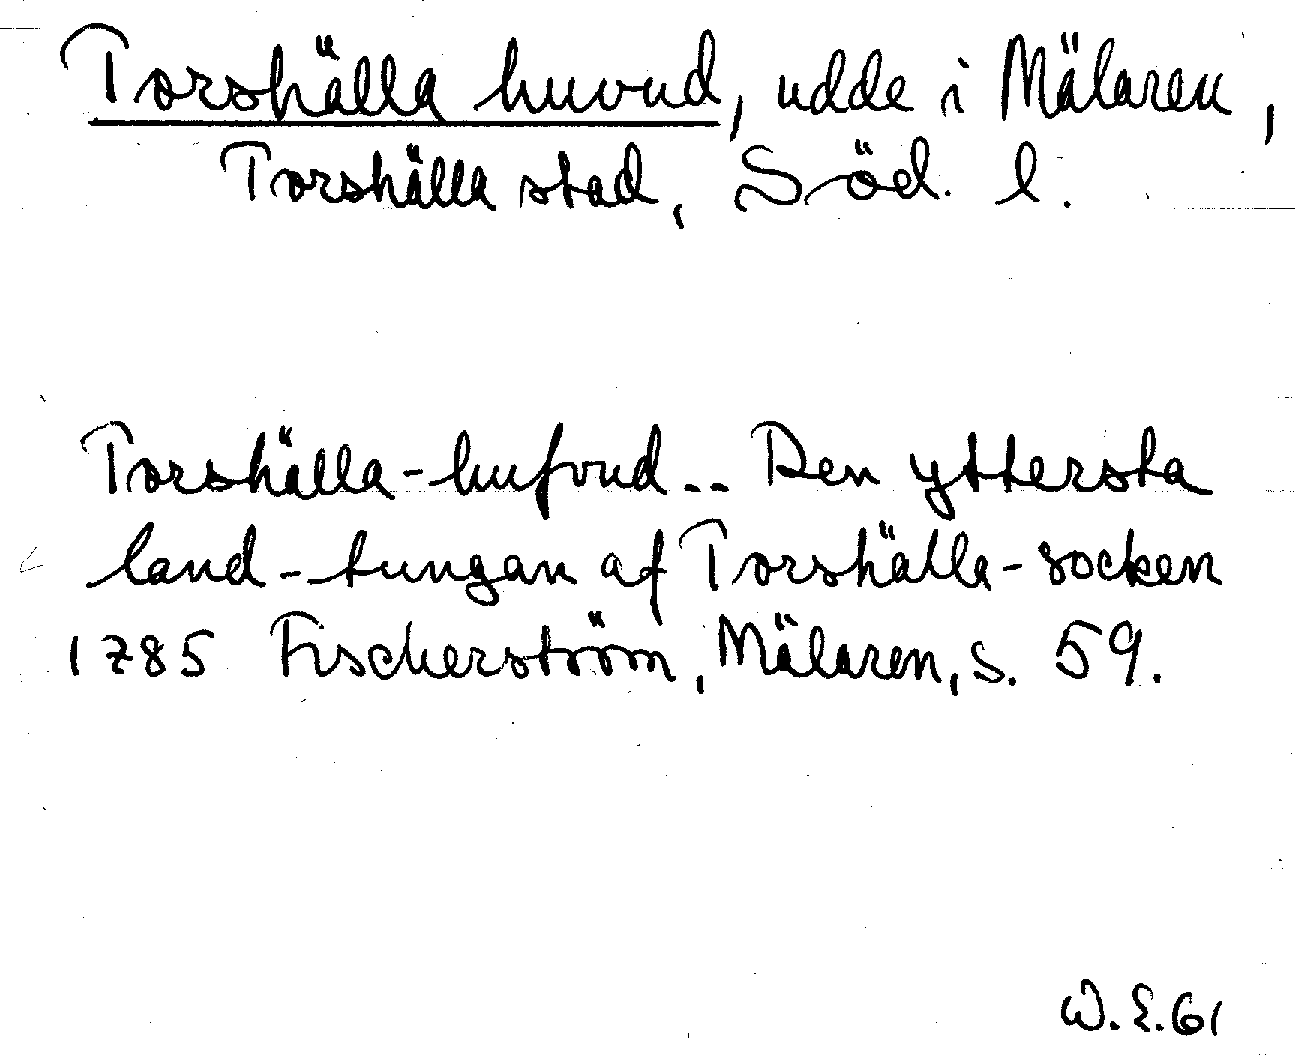 Torshälla huvud, udde i Mälaren,
Torshälla stad, Söd. l.
Torshälla-hufvud.. Den yttersta
land-tungan af Torshälla-socken
1785 Fischerström, Mälaren, s. 59.
W.E.61